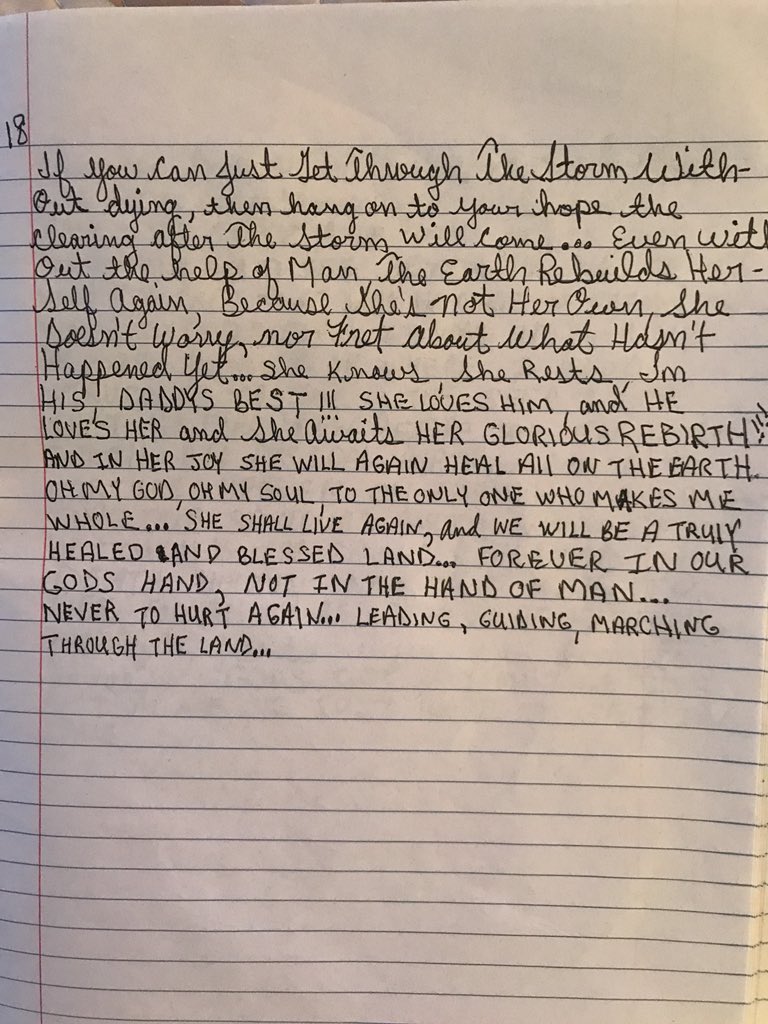 18
If you can Just Get Through The Storm With-
Out dying, then hang on to your hope the
clearing after The Storm Will Come... Even with
Out the help of Man, The Earth Rebuilds Her-
Self Again, Because She's Not Her Own, She
Doesn't Worry, nor Fret About What Hasn't
Happened Yet... She Knows, She Rests, Im
HIS, DADDYS BEST !!! SHE LOVES HIM, and HE
LOVES HER and She Awaits HER GLORIOUS REBIRTH!!!
AND IN HER JOY SHE WILL AGAIN HEAL All ON THE EARTH.
OH MY GOD, OH MY SOUL, TO THE ONLY ONE WHO MAKES ME
WHOLE... SHE SHALL LIVE AGAIN, and WE WILL BE A TRULY
HEALED AND BLESSED LAND... FOREVER IN OUR
GODS HAND, NOT IN THE HAND OF MAN...
NEVER TO HURT AGAIN... LEADING, GUIDING, MARCHING
THROUGH THE LAND...